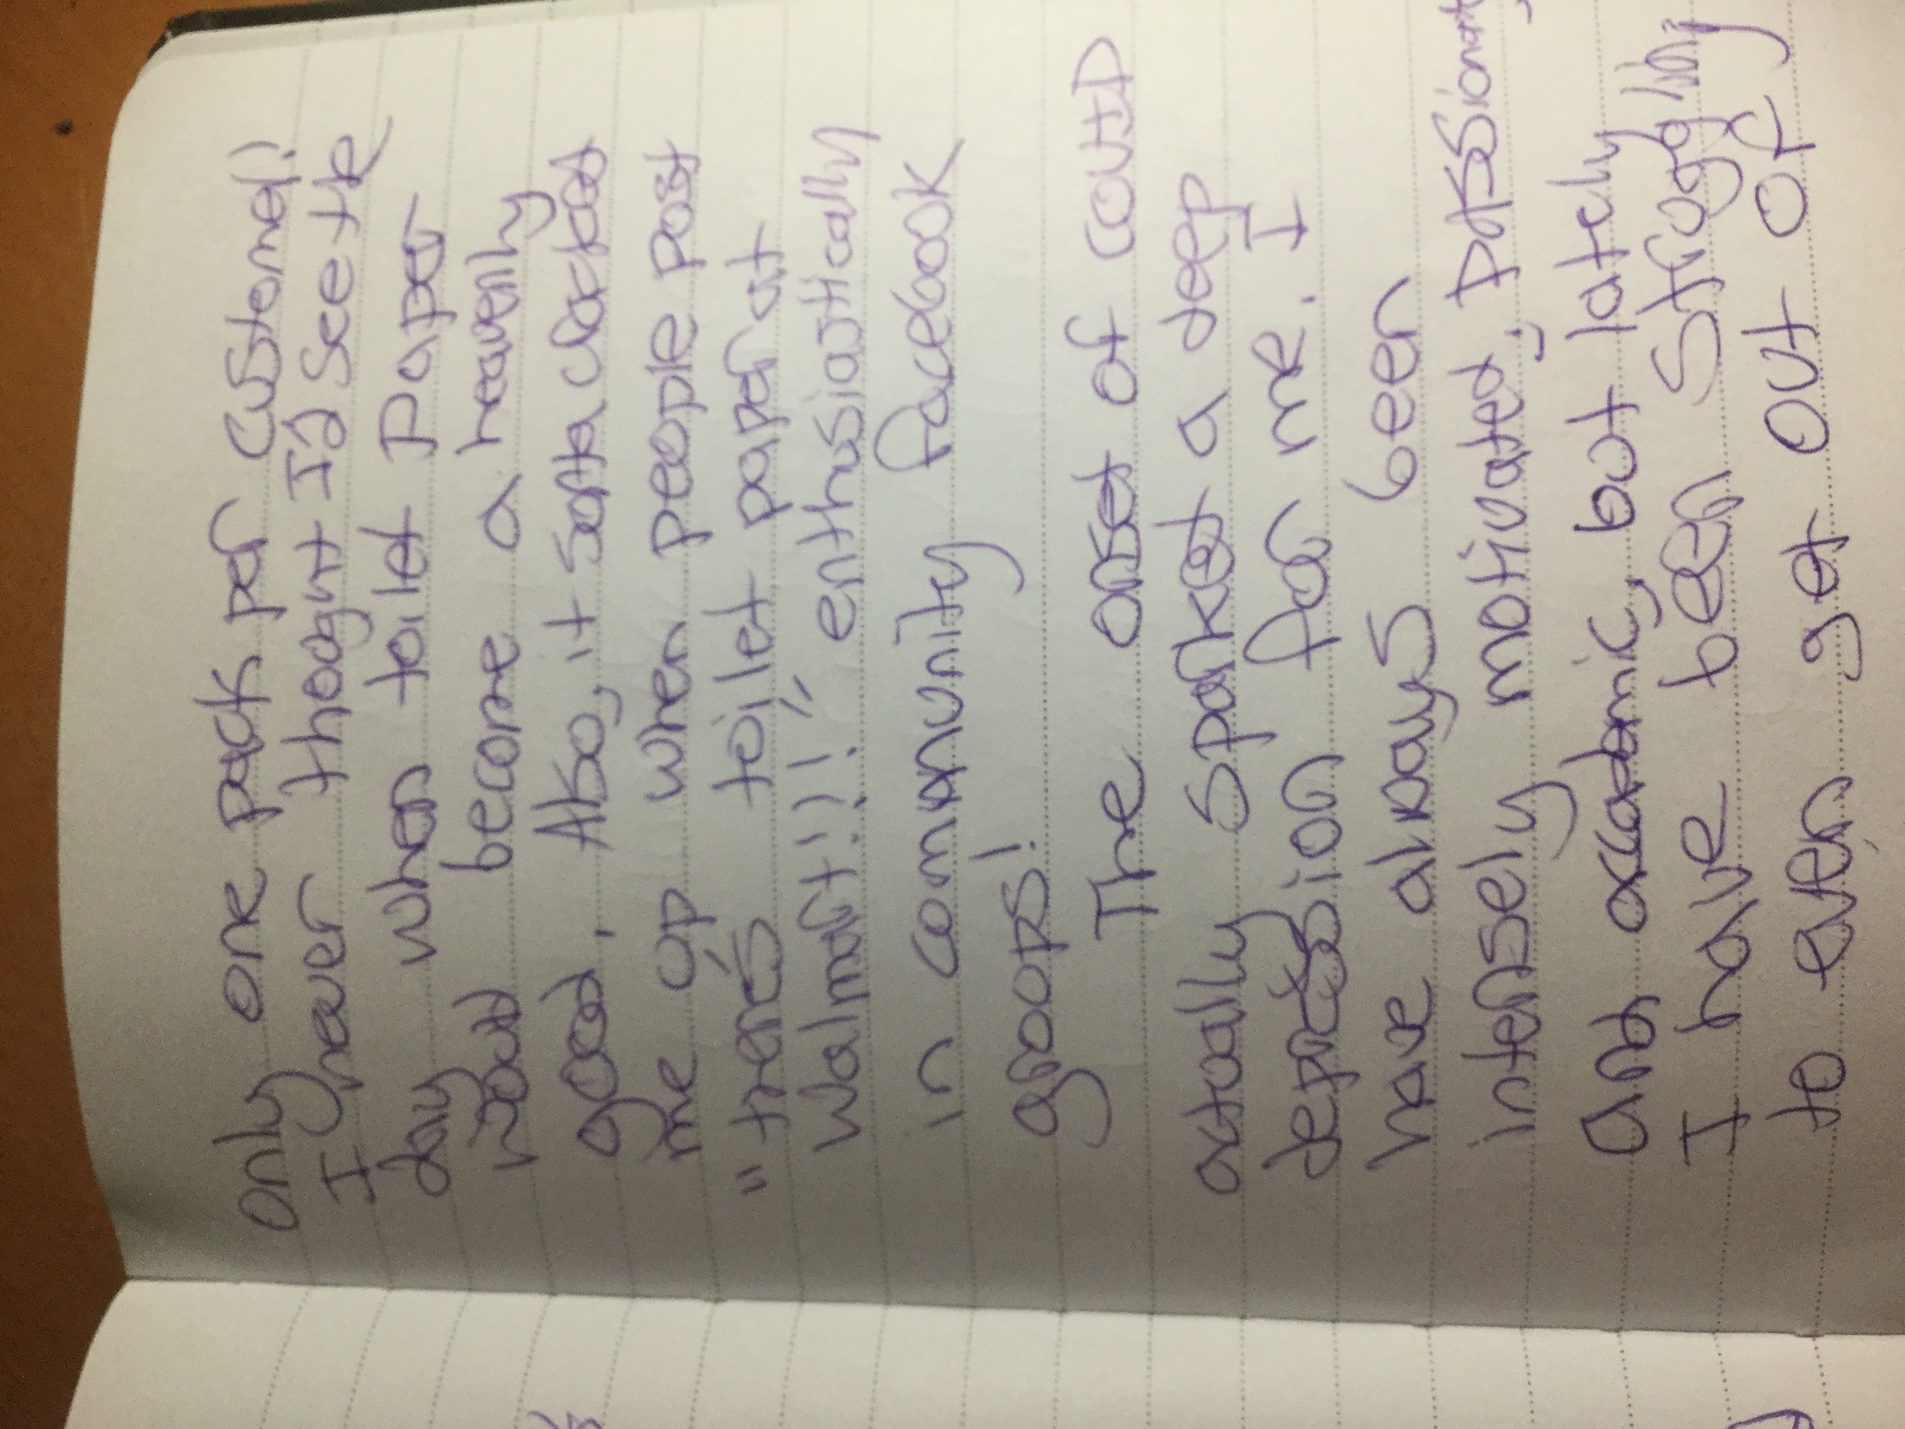 only one pack per customer!
I never thought I'd see the
day when toilet paper
would become a heavenly
good. Also, it sorta cracks
me up when people post
"there's toilet paper at
Walmart!!!!" enthusiastically
in community facebook
groups!
The onset of COVID
actually sparked a deep
depression for me. I
have always been
intensely motivated, passionate,
and academic, but lately
I have been struggling
to even get out of